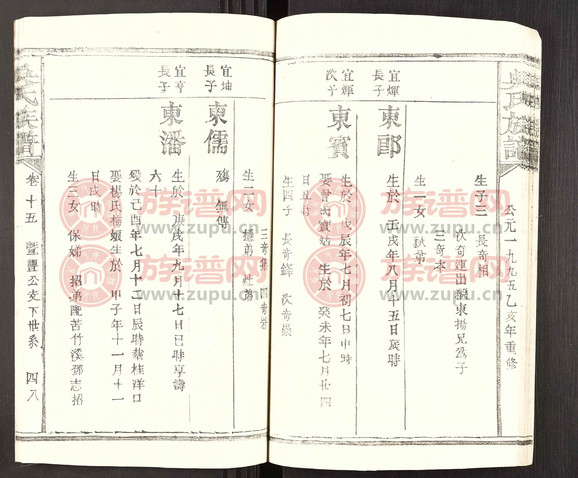 吳氏族譜
公元一九九五乙亥年重修
生子三 長奇相
次奇連出繼東揚兄為子
三奇本
生一女
宜煇
長子
東郎
生於壬戌年八月十五日歲時
宜煇
次子
東賓
生於戊辰年七月初七日申時
娶曾氏寶姑 生於癸未年七月廿四
日丑時
生四子 長奇鋒 次奇崇
三奇集 四奇崇
生二女 德弟
宜坤
長子
東儒
殤 無傳
宜亨
長子
東潘
生於庚戌年九月十七日巳時享壽
六十
歿於己酉年七月十二日辰時葬桂洋口
娶楊氏楊娘生於甲子年十一月十一
日戌時
生三女 保姊 招弟配苦竹溪鄧志招
吳氏族譜
卷十五
豐公支下世系
四八
族谱网
www.zupu.cn
族谱网
www.zupu.cn